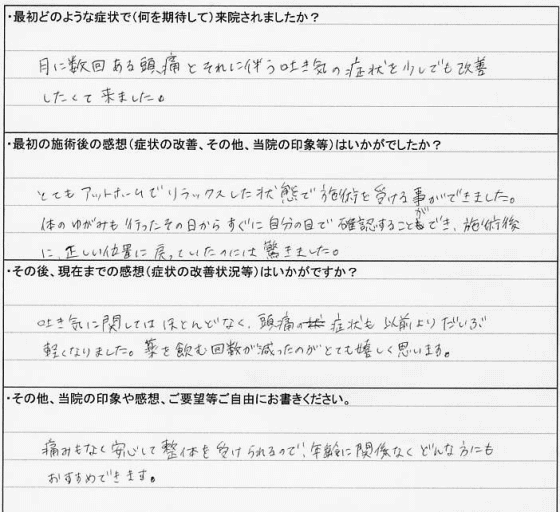 ・最初どのような症状で(何を期待して)来院されましたか？
月に数回ある頭痛とそれに伴う吐き気の症状を少しでも改善
したくて来ました。
・最初の施術後の感想(症状の改善、その他、当院の印象等)はいかがでしたか？
とてもアットホームでリラックスした状態で施術を受ける事ができました。
体のゆがみも行ったその日からすぐに自分の目で確認することができ、施術後
に、正しい位置に戻っていたのには驚きました。
・その後、現在までの感想(症状の改善状況等)はいかがですか？
吐き気に関してはほとんどなく、頭痛の症状も以前よりだいぶ
軽くなりました。薬を飲む回数が減ったのがとても嬉しく思います。
・その他、当院の印象や感想、ご要望等ご自由にお書きください。
痛みもなく安心して整体を受けられるので、年齢に関係なくどんな方にも
おすすめできます。